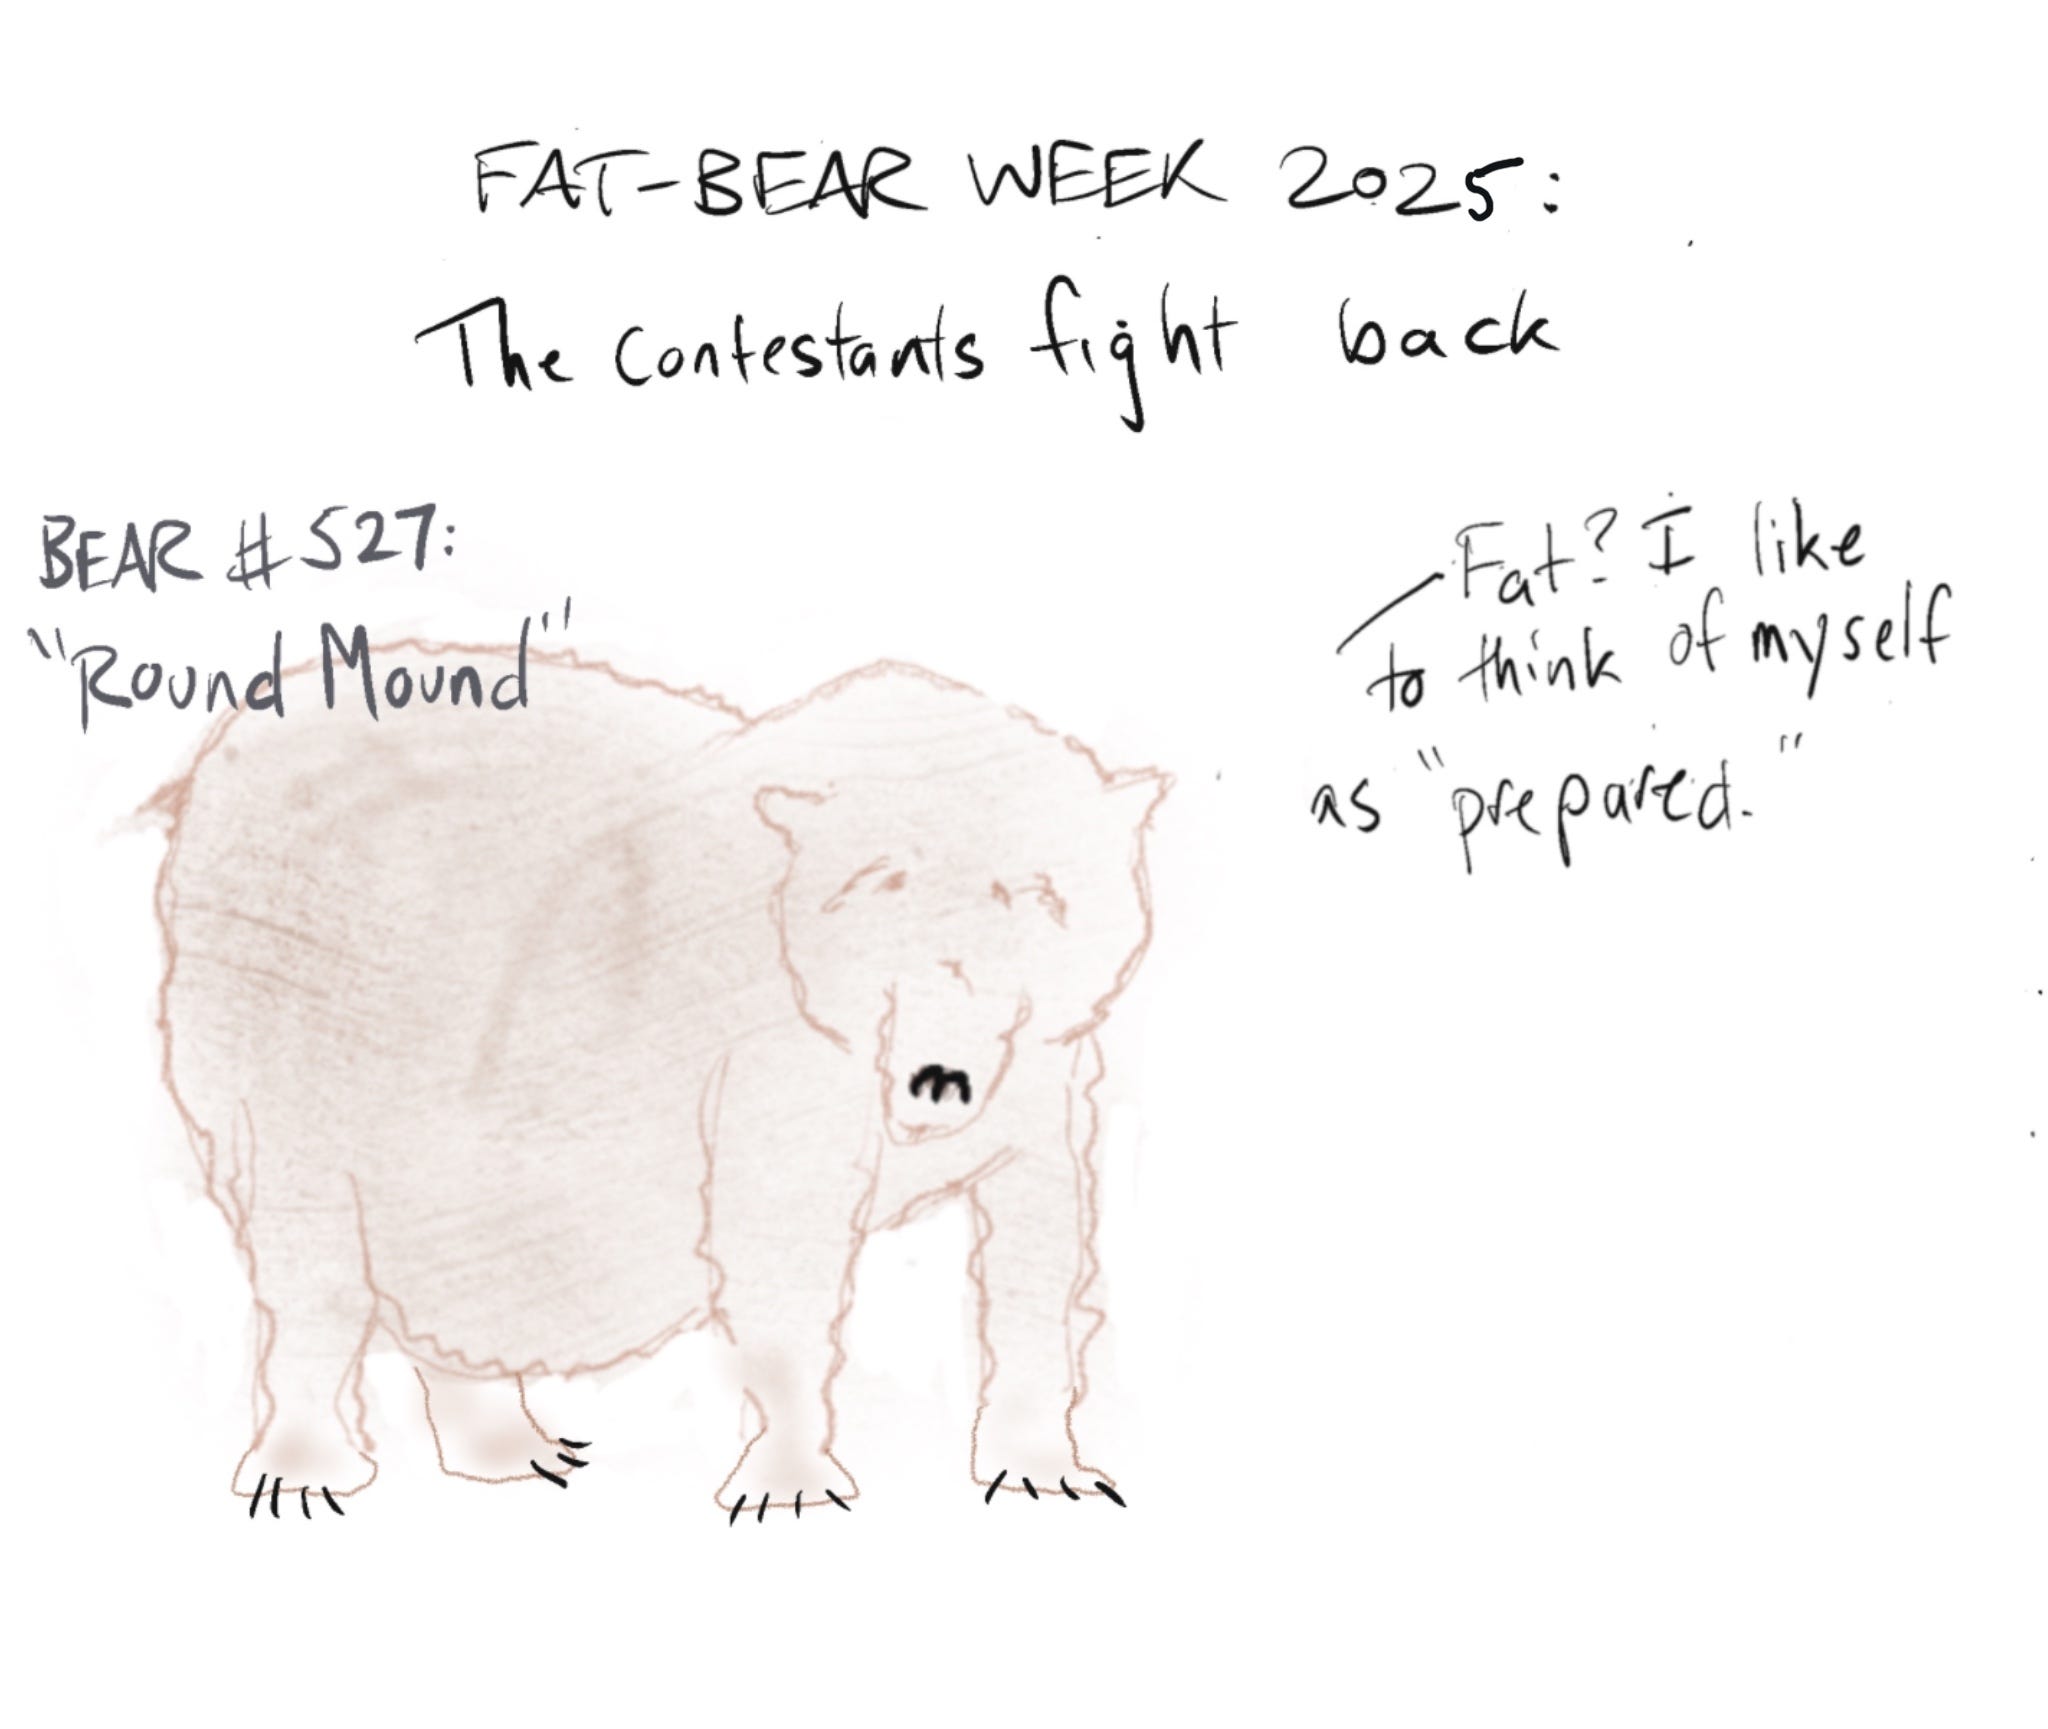 FAT-BEAR WEEK 2025:
The contestants fight back
BEAR #527:
"Round Mound"
Fat? I like
to think of myself
as "prepared."